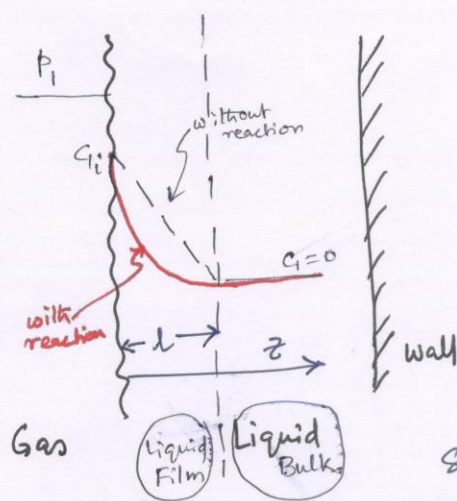 P1
without
reaction
C1i
C1=0
with
reaction
l
z
Wall
Gas
Liquid
Film
Liquid
Bulk